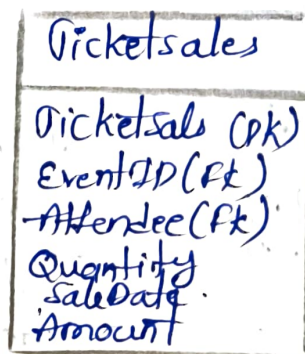 Ticketsales
Ticketsals (pk)
EventID (fk)
Attendee (fk)
Quantity
SaleDate.
Amount